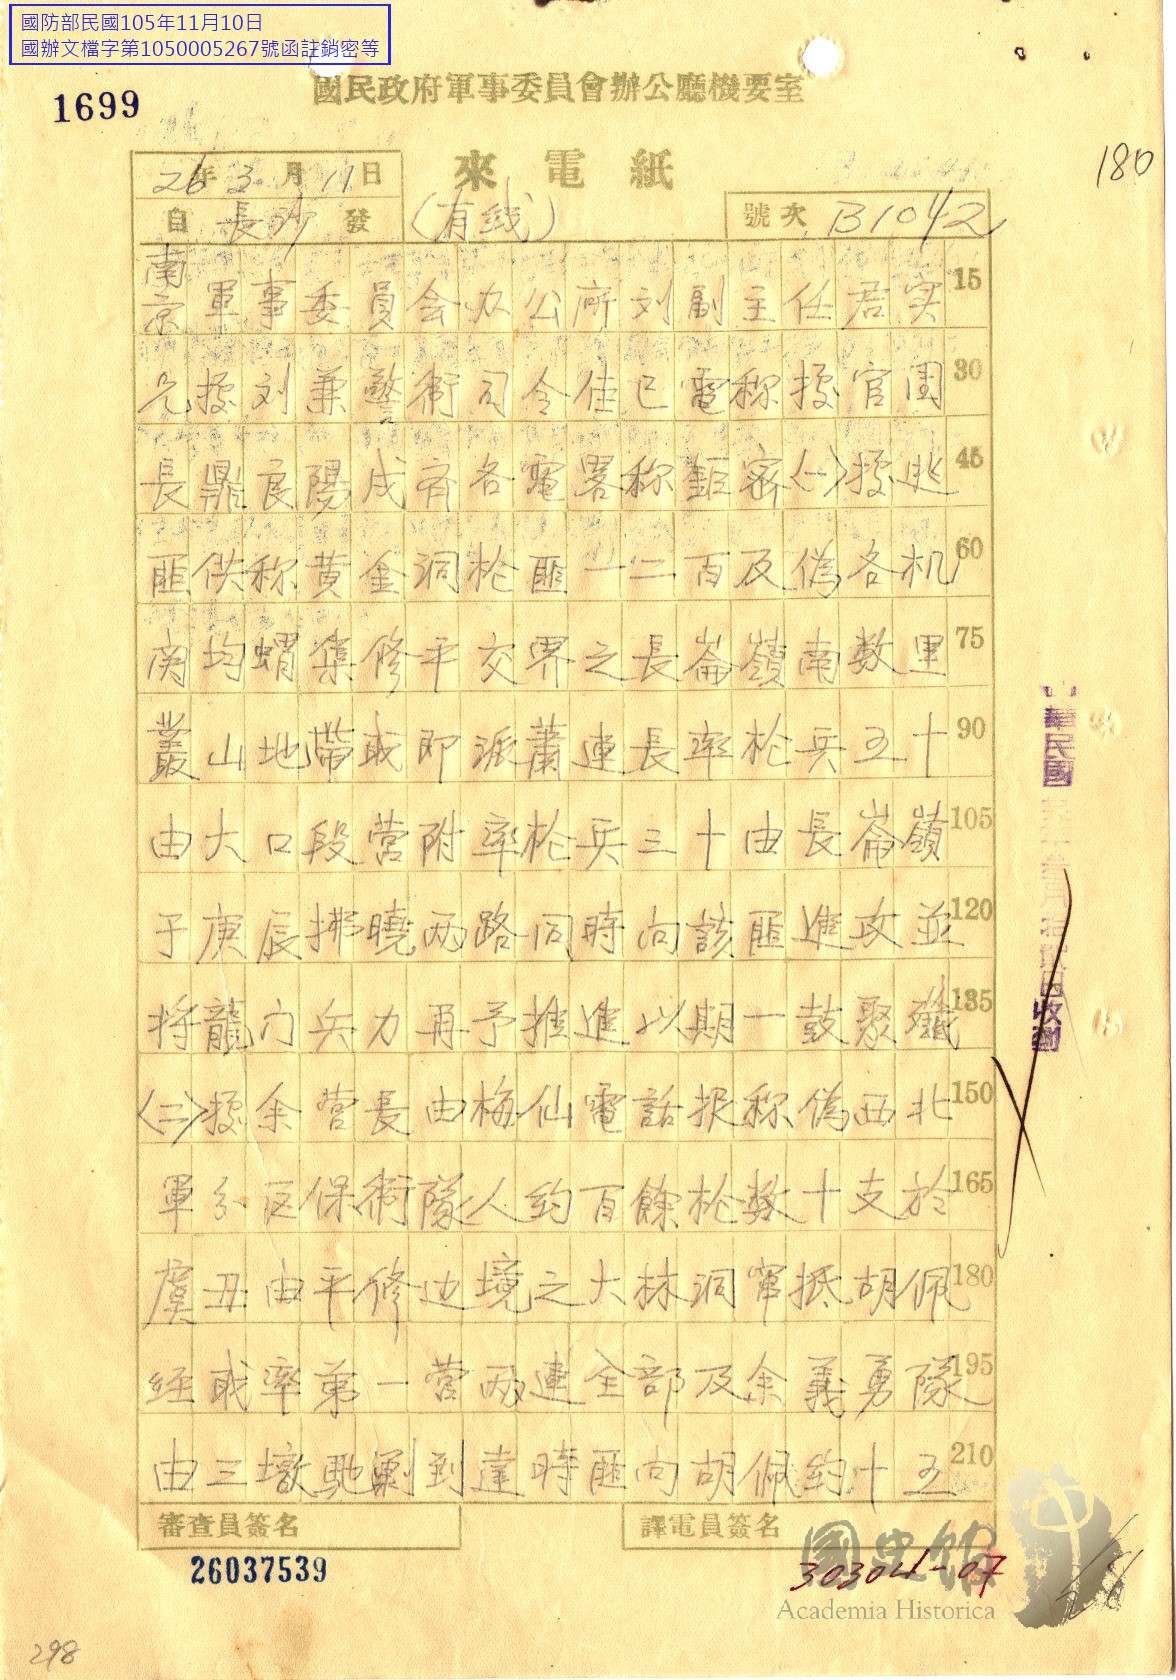 國防部民國105年11月10日
國辦文檔字第1050005267號函註銷密等
國民政府軍事委員會辦公廳機要室
1699
180
來電紙
26年3月11日
自長沙發
(有线)
號次 B1042
南京軍事委員会办公所刘副主任君实 15
兄据刘兼警衛司令佳巳電称据官團 30
長鼎辰陽成有各電畧称鉅密(一)据逃 45
匪供称黄金洞枪匪一二百及偽各机 60
関均蝟集修平交界之長崙嶺南数里 75
叢山地帶職即派蕭連長率枪兵五十 90
由大口段营附率枪兵三十由長崙嶺 105
于庚辰拂曉两路同時向該匪進攻並 120
将龍门兵力再予推進以期一鼓聚殲 135
(二)据余营長由梅仙電話报称偽西北 150
軍分区保衛隊人約百餘枪数十支於 165
虞丑由平修边境之大林洞窜抵胡佩 180
经職率第一营两連全部及余義勇隊 195
由三墩馳剿到達時匪向胡佩約十五 210
審查員簽名
譯電員簽名
26037539
30304-07
國史館
Academia Historica
298